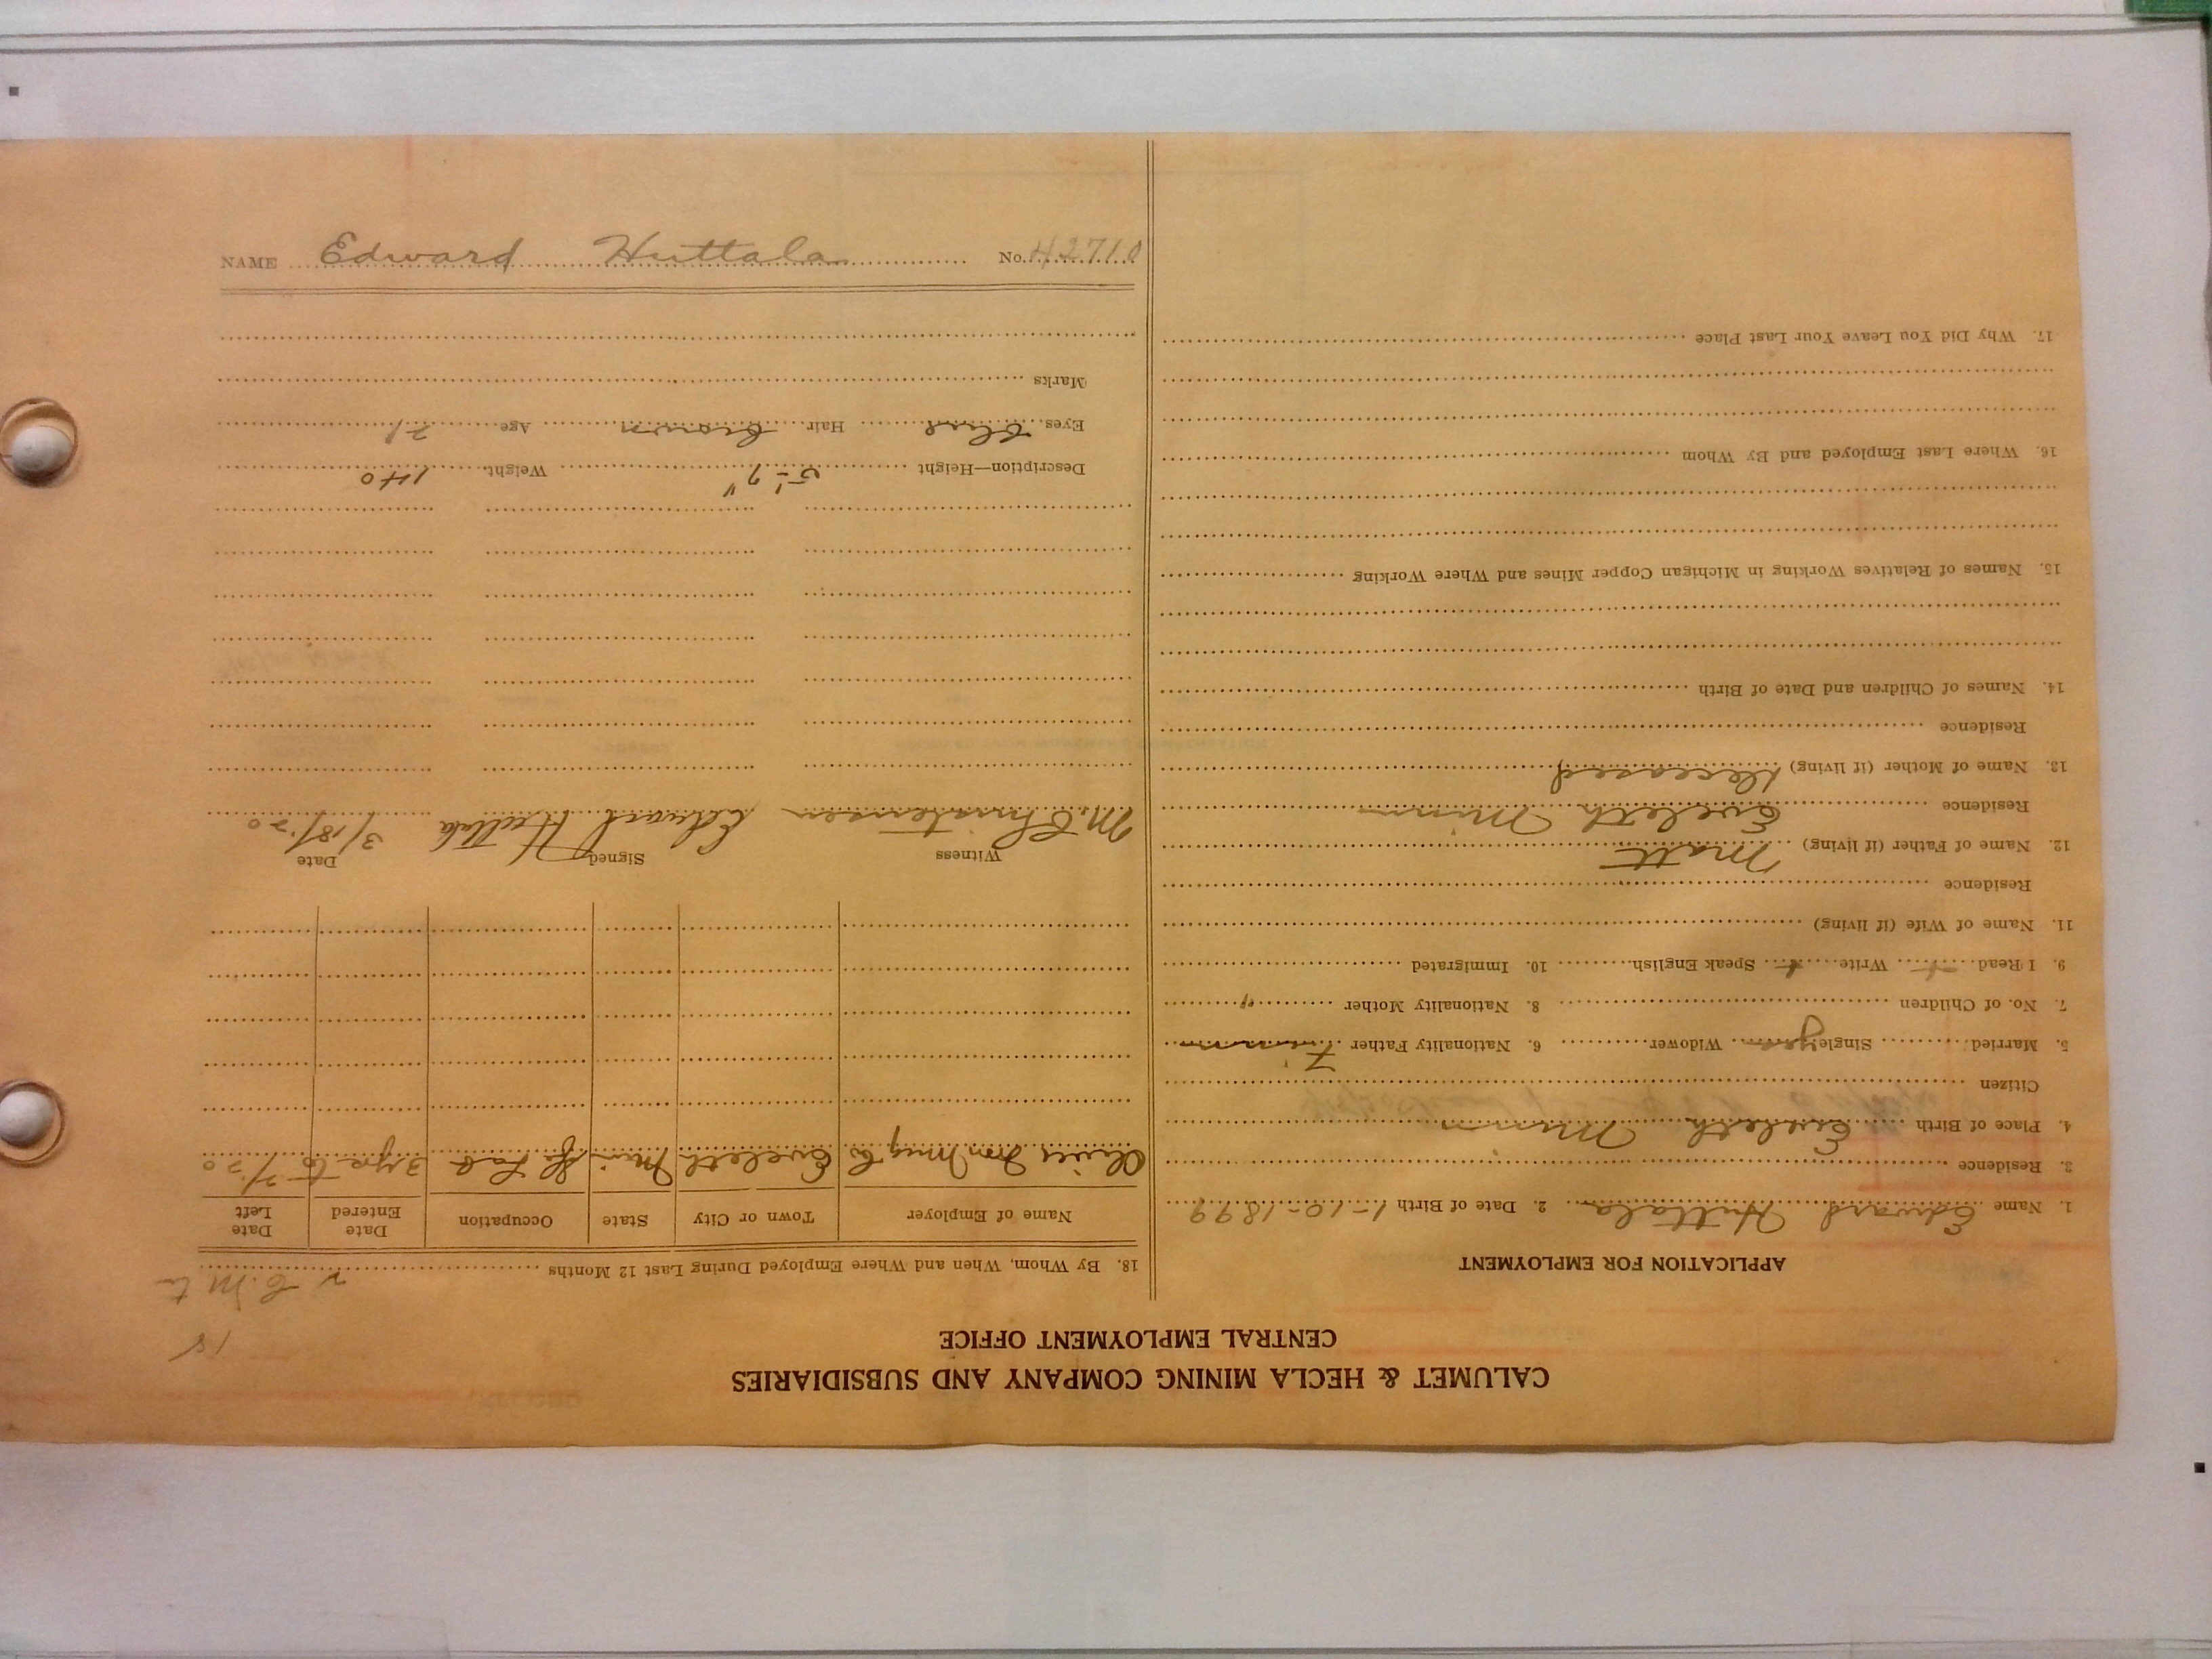 CALUMET & HECLA MINING COMPANY AND SUBSIDIARIES
CENTRAL EMPLOYMENT OFFICE
APPLICATION FOR EMPLOYMENT
1. Name Edward Huttala 2. Date of Birth 1-10-1899
3. Residence
4. Place of Birth Eveleth Minn
Citizen
5. Married Single yes Widower 6. Nationality Father Finnn
7. No. of Children 8. Nationality Mother "
9. I Read Write Speak English 10. Immigrated
11. Name of Wife (if living)
Residence
12. Name of Father (if living) Matt
Residence Eveleth Minn
13. Name of Mother (if living) Deceased
Residence
14. Names of Children and Date of Birth
15. Names of Relatives Working in Michigan Copper Mines and Where Working
16. Where Last Employed and By Whom
17. Why Did You Leave Your Last Place
18. By Whom, When and Where Employed During Last 12 Months
Name of Employer Town or City State Occupation Date Entered Date Left
Oliver Iron Mng Co Eveleth Min 3 yrs to /20
Witness Signed Date
M. Christensen Edward Huttala 3/18/20
Description—Height 5'-7" Weight 140
Eyes blue Hair brown Age 21
Marks
NAME Edward Huttala No. 42710